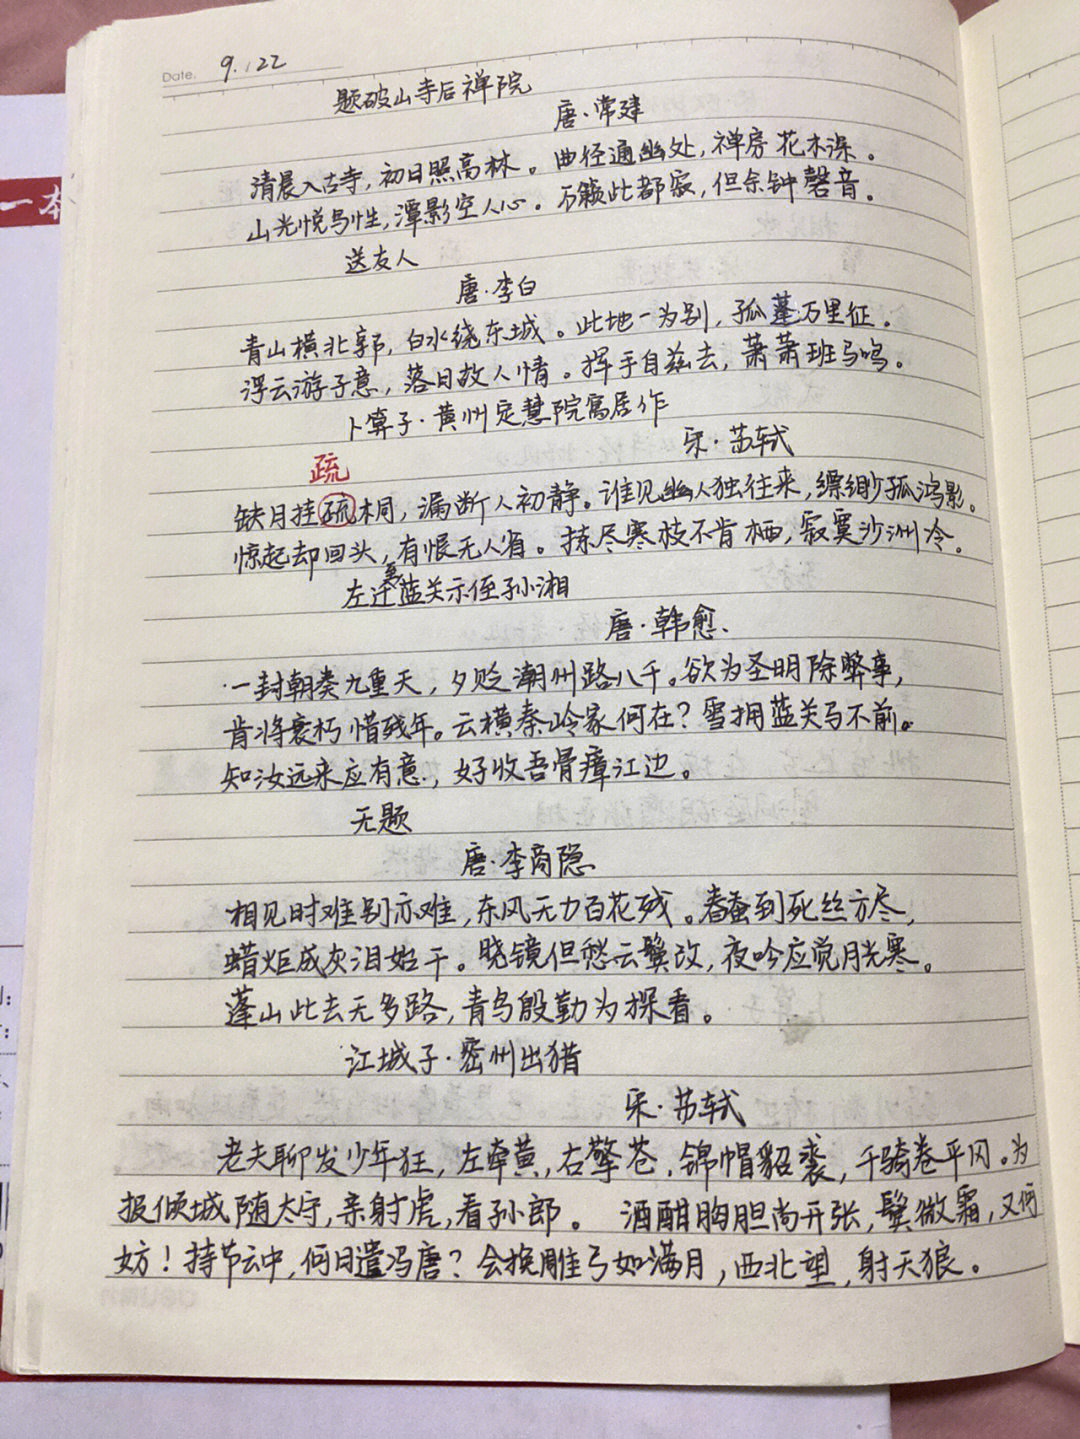 一本
Date. 9.22
题破山寺后禅院
唐·常建
清晨入古寺,初日照高林。曲径通幽处,禅房花木深。
山光悦鸟性,潭影空人心。万籁此都寂,但余钟磬音。
送友人
唐·李白
青山横北郭,白水绕东城。此地一为别,孤蓬万里征。
浮云游子意,落日故人情。挥手自兹去,萧萧班马鸣。
卜算子·黄州定慧院寓居作
宋·苏轼
疏
缺月挂疏桐,漏断人初静。谁见幽人独往来,缥缈孤鸿影。
惊起却回头,有恨无人省。拣尽寒枝不肯栖,寂寞沙洲冷。
左迁至蓝关示侄孙湘
唐·韩愈.
一封朝奏九重天,夕贬潮州路八千。欲为圣明除弊事,
肯将衰朽惜残年。云横秦岭家何在?雪拥蓝关马不前。
知汝远来应有意,好收吾骨瘴江边。
无题
唐·李商隐
相见时难别亦难,东风无力百花残。春蚕到死丝方尽,
蜡炬成灰泪始干。晓镜但愁云鬓改,夜吟应觉月光寒。
蓬山此去无多路,青鸟殷勤为探看。
江城子·密州出猎
宋·苏轼
老夫聊发少年狂,左牵黄,右擎苍,锦帽貂裘,千骑卷平冈。为
报倾城随太守,亲射虎,看孙郎。 酒酣胸胆尚开张,鬓微霜,又何
妨!持节云中,何日遣冯唐?会挽雕弓如满月,西北望,射天狼。